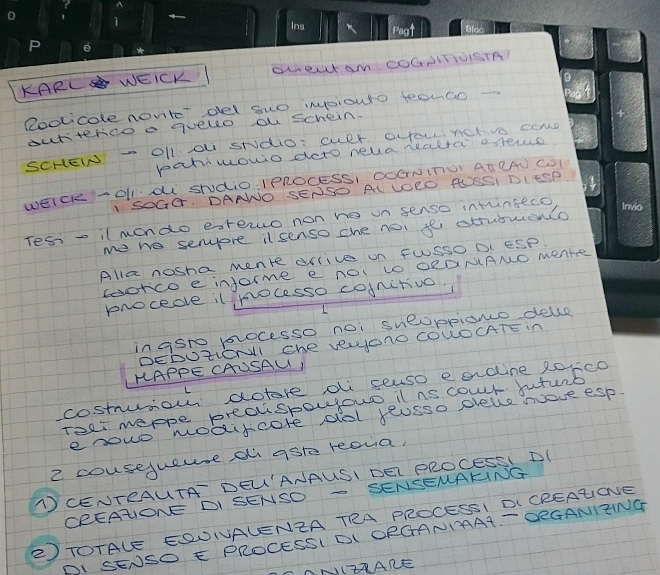 P
é
Ins
Pag↑
Bloc
9
Pag↑
+
Invio
KARL WEICK
orientam COGNITIVISTA
Radicale novità del suo impianto teorico →
antitetico a quello di Schein.
SCHEIN → ogg. di studio: cult. come
patrimonio dato nella realtà esterna
WEICK → ogg. di studio: I PROCESSI COGNITIVI ATTRAV CUI
I SOGG. DANNO SENSO AI LORO FLUSSI DI ESP.
Tesi → il mondo esterno non ha un senso intrinseco,
ma ha sempre il senso che noi gli attribuiamo
Alla nostra mente arriva un FLUSSO DI ESP.
caotico e informe e noi lo ORDINIAMO mente
procede il processo cognitivo.
in qsto processo noi sviluppiamo delle
DEDUZIONI che vengono COLLOCATE in
MAPPE CAUSALI
costruzioni dotate di senso e ordine logico
Tali mappe predispongono il ns comp. futuro
e sono modificate dal flusso delle nuove esp.
2 conseguenze di qsta teoria.
1) CENTRALITÀ DELL'ANALISI DEI PROCESSI DI
CREAZIONE DI SENSO → SENSEMAKING
2) TOTALE EQUIVALENZA TRA PROCESSI DI CREAZIONE
DI SENSO E PROCESSI DI ORGANIZZAZ → ORGANIZING
ORGANIZZARE